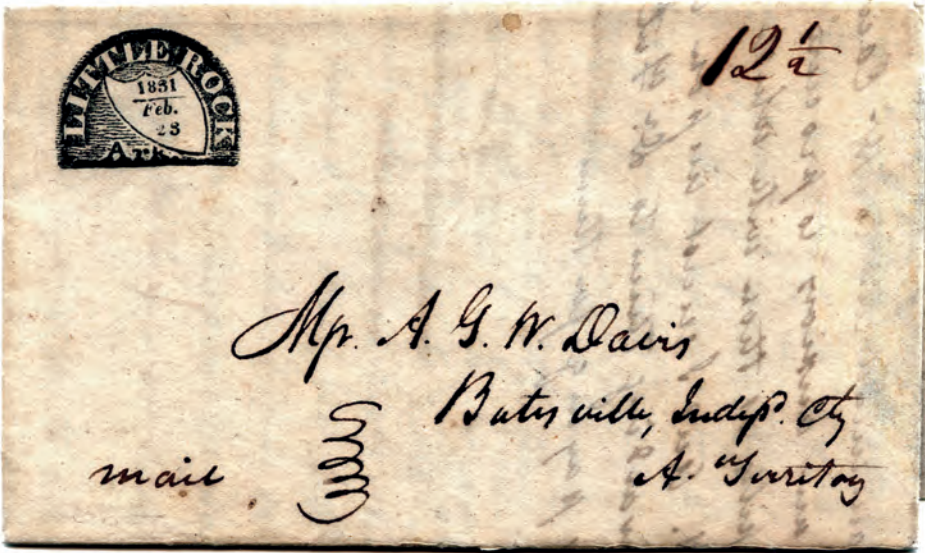 LITTLE ROCK
1831
Feb.
23
Ark.
12 1/2
Mr. A. G. W. Davis
Batesville, Indepd. Cty
A. Territory
mail